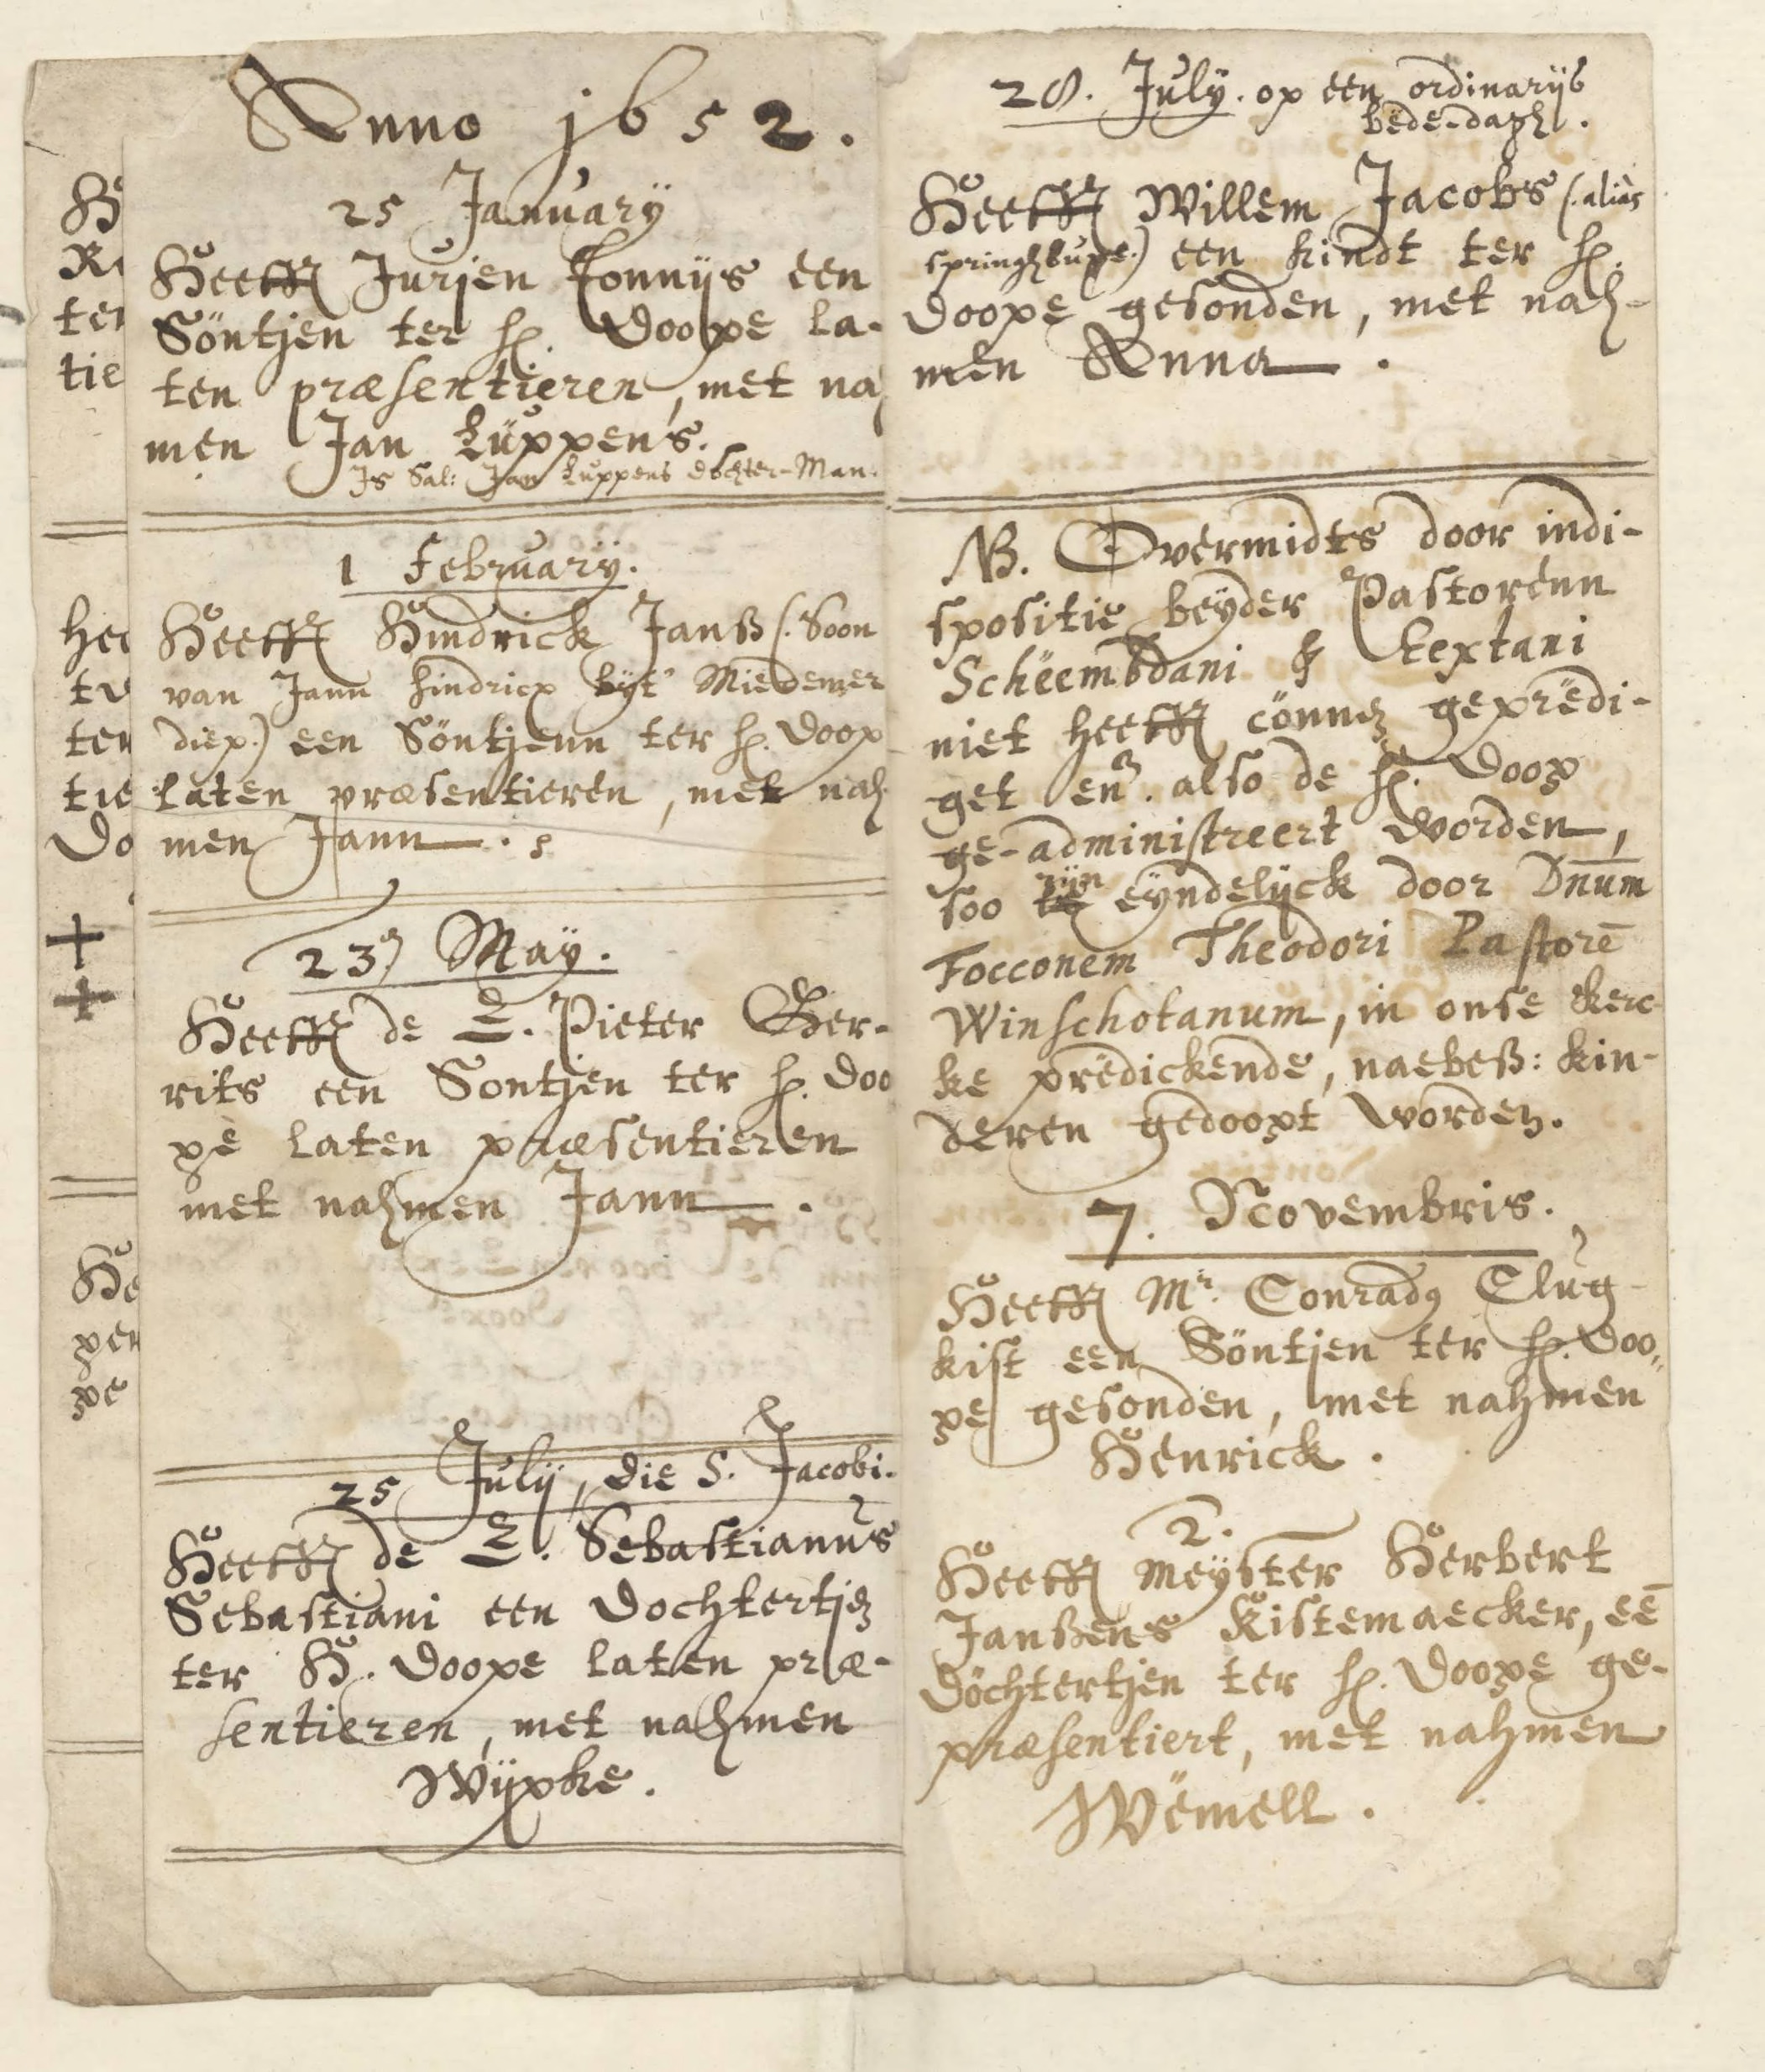 Anno 1652.
25 January
Heefft Jurjen Tonnijs een
Söntjen ter H. Doope la-
ten præsentieren, met nah
men Jan Luppens.
Is Sal: Jan Luppens dochter-Man.
1 February.
Heefft Hindrick Janß (: Soon
van Jann Hindricx byt Miedemer
diep.) een Söntjenn ter H. Doop
laten præsentieren, met nah
men Jann.
23 May.
Heefft de E. Pieter Ger-
rits een Sontjen ter H. Doo
pe laten præsentieren
met nahmen Jann.
25 July, die S. Jacobi.
Heefft de E. Sebastianus
Sebastiani een Dochtertjen
ter H. Doope laten præ-
sentieren, met nahmen
Wijpke.
28. July. op een ordinariis
bede-dagh.
Heefft Willem Jacobs (: alias
) een kindt ter H.
Doope gesonden, met nah-
men Anna.
NB. Overmidts door indi-
spositie beyder Pastorenn
Scheembdani & Textani
niet heefft connen gepredi-
get en. also de H. Doop
ge-administreert worden,
soo zijn eyndelijck door Dnum
Focconem Theodori Pastorē
Winschotanum, in onse kerc
ke predickende, naebeß: kin-
deren gedoopt worden.
7. Novembris.
Heefft Mr. Conradus Clug-
kist een Söntjen ter H. Doo„
pe gesonden, met nahmen
Henrick.
2.
Heefft Meyster Herbert
Janßens Kistemaecker, eē
Döchtertjen ter H. Doope ge-
præsentiert, met nahmen
Wemell.
He
tie
ter
tie
Do
He
per
pe